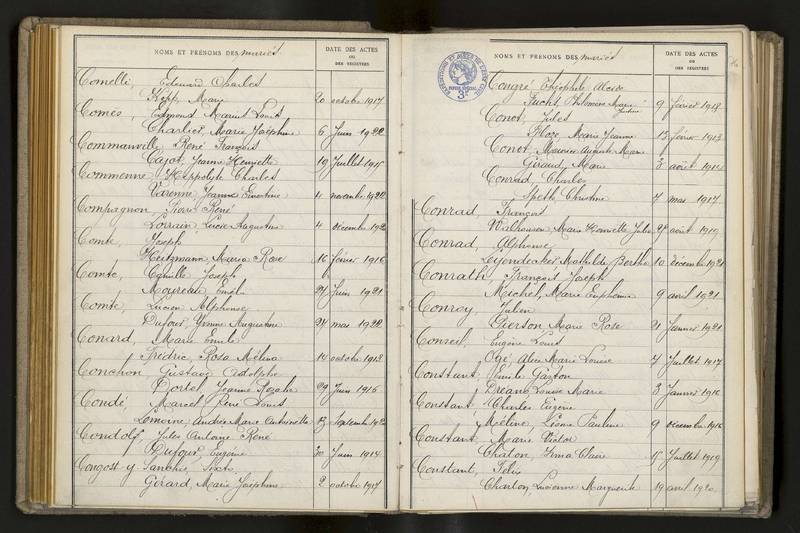 NOMS ET PRÉNOMS DES mariés
DATE DES ACTES
OU
DES REGISTRES
Comelli, Edouard Charles
Kipp, Marie 20 octobre 1917
Comès, Edmond Marius Louis
Charlier, Marie Joséphine 6 Juin 1922
Commanville, René François
Cazot, Jeanne Henriette 19 Juillet 1915
Commenne, Hippolyte Charles
Varenne, Jeanne Ernestine 4 novembre 1922
Compagnon, Pierre René
Lorrain, Lucie Augustine 4 décembre 1920
Comte, Joseph
Heitzmann, Maria Rose 16 février 1916
Comte, Camille Joseph
27 Juin 1921
Comte, Lucien Alphonse
Dufour, Yvonne Augustine 24 mai 1922
Conard, Marie Emile
Frédric, Rosa Mélina 14 octobre 1918
Conchon, Gustave Adolphe
Dortel, Jeanne Rosalie 29 Juin 1916
Condé, Marcel René Louis
Lemoine, Andrée Marie Antoinette Septembre
Condolf, Jules Antoine René
Dufour, Eugénie 20 Juin 1914
Congost y Sanchis, Sixto
Gérard, Marie Joséphine 2 octobre 1917
NOMS ET PRÉNOMS DES mariés
DATE DES ACTES
OU
DES REGISTRES
3F
Congré, Théophile Alcide
Fuchs, Philomène Marie Justine 9 février 1918
Conot, Jules
Marie Jeanne 13 février 1913
Conot, Maurice Auguste
Géraud, 3 août 1914
Conrad, Charles
Speth, Christine 7 mai 1917
Conrad, François
Walhausen, Marie Henriette Julie 28 août 1919
Conrad, Alphonse
Lijendecker, Mathilde Berthe 10 décembre 1921
Conrath, François Joseph
Michel, Marie Euphémie 9 avril 1921
Conroy, Julien
Pierson, Marie Rose 21 Janvier 1921
Conseil, Eugène Louis
Ogé, Alice Marie Louise 7 Juillet 1917
Constant, Emile Gaston
Dréano, Louise Marie 3 Janvier 1916
Constant, Charles Eugène
Méline, Léonie Pauline 9 décembre 1916
Constant, Marie Victor
Chalon, Irma Claire 15 Juillet 1919
Constant, Félix
Charton, Lucienne Marguerite 19 avril 1920